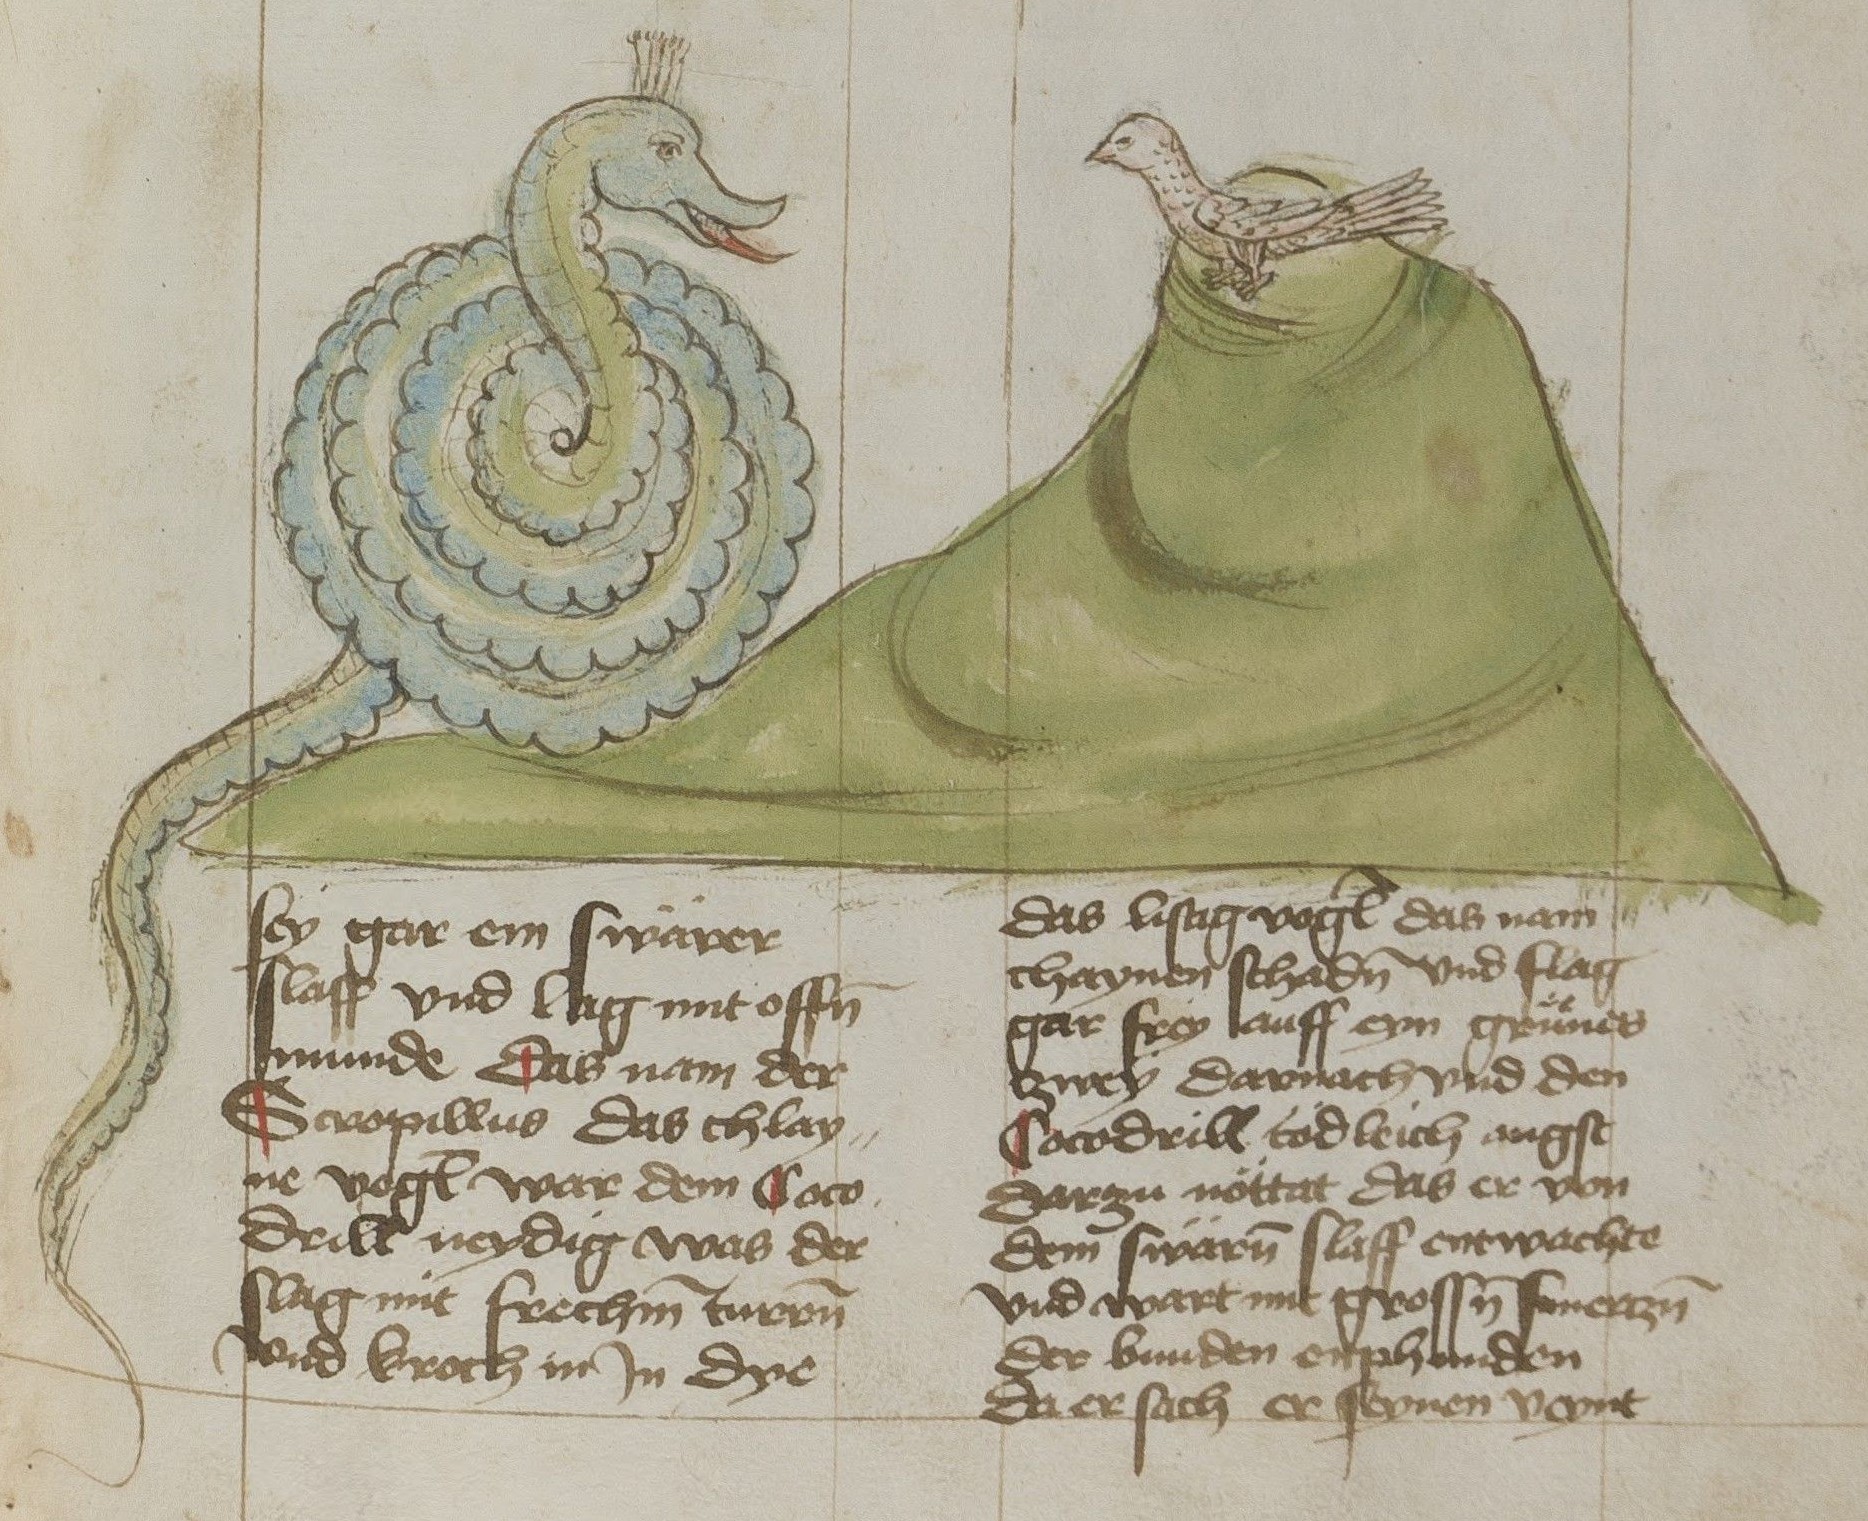 sey gar ein swärer
slaff vnd lag mit offn̄
munde Das nam der
Scropillus das chlay„
ne vogl̄ war dem Coco
drill neydig was der
slag mit frechm̄ turrn̄
vnd kroch in In dye
das listig vogl̄ das nam
chaynen schadn̄ vnd flag
gar frey auff eyn grünes
zwey darnach vnd den
Cocodrill tödleich angst
darzu nöttat das er von
dem swärn̄ slaff entwachte
vnd wart mit grossn̄ smerczn̄
der bunden enphunden
da er sach er seynen veynt